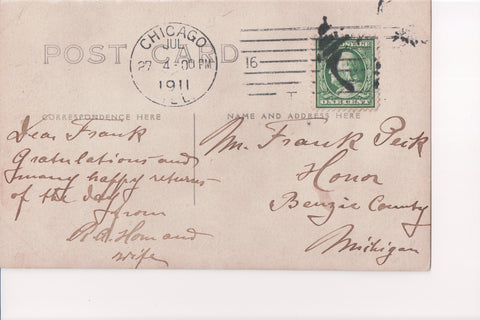 POST CARD
CHICAGO
JUL
27 4-00 PM
1911
ILL
16
T
POSTAGE
ONE CENT
CORRESPONDENCE HERE
NAME AND ADDRESS HERE
Dear Frank
Gratulations and
many happy returns
of the day
from
R.A. Hom and
wife
Mr. Frank Peck
Honor
Benzie County
Michigan